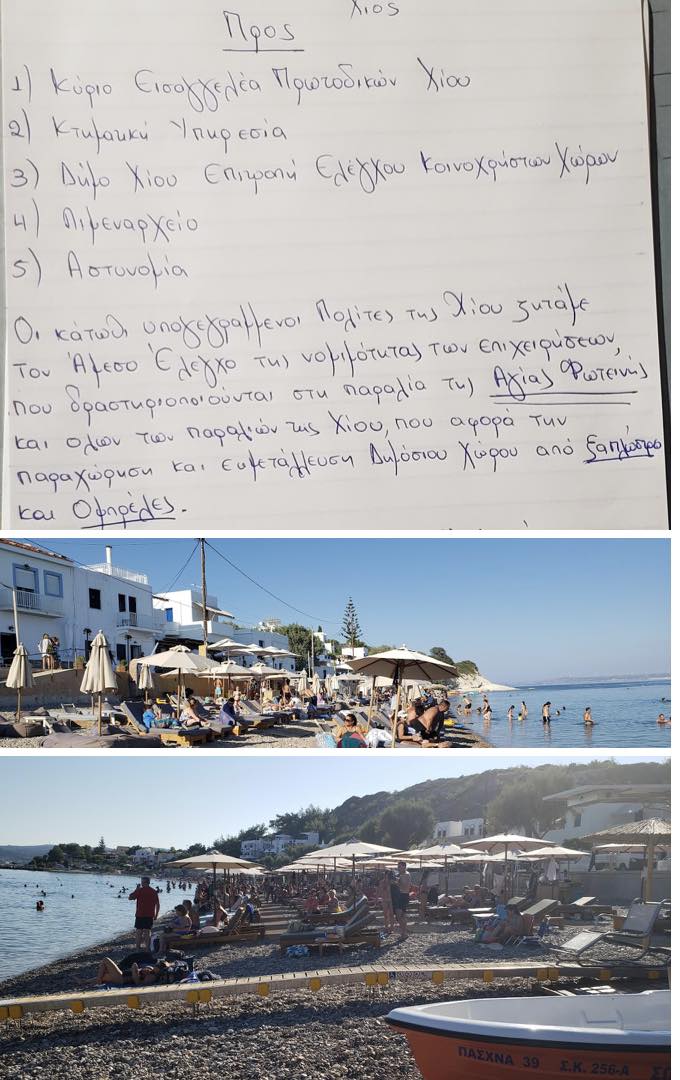 Χιος
Προς
1) Κύριο Εισαγγελέα Πρωτοδικών Χίου
2) Κτηματική Υπηρεσία
3) Δήμο Χίου Επιτροπή Ελέγχου Κοινοχρήστων Χώρων
4) Λιμεναρχείο
5) Αστυνομία
Οι κάτωθι υπογεγραμμενοι Πολίτες της Χίου ζητάμε
τον Άμεσο Έλεγχο της νομιμότητας των επιχειρήσεων,
που δραστηριοποιούνται στη παραλία της Αγίας Φωτεινής
και ολων των παραλιών της Χίου, που αφορά την
παραχώρηση και εκμετάλλευση Δημόσιου Χώρου από ξαπλώστρα
και Ομπρέλες.
ΠΑΣΧΝΑ 39 Σ.Κ. 256-Α